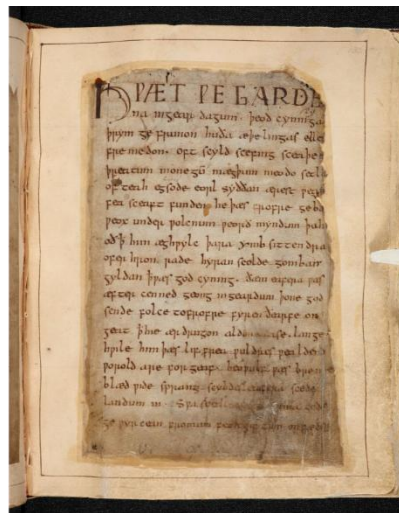 HǷÆT ǷE GARDE
na ingear dagum. þeod cyninga
þrym ge frunon huða æþelingas elle
fremedon. oft scyld scefing sceaþe
þreatum monegū mægþum meodo setla
of teah egsode eorl syððan ærest ƿear
fea sceaft funden he þæs frofre geba
ƿeox under ƿolcnum ƿeorð myndum þah
oð ꝥ him æghƿylc þara ymb sittendra
ofer hron rade hyran scolde gomban
gyldan ꝥ ƿæs god cyning. ðæm eafera ƿæs
æfter cenned geong ingeardum þone god
sende folce tofrofre fyren ðearfe on
geat ꝥ hie ær drugon aldor ase. lange
hƿile him þæs lif frea ƿuldres ƿealdend
ƿorold are for geaf. beoƿulf ƿæs breme
blæd ƿide sprang scyldes eafera scede
landum in. Sƿa guma gode
ge ƿyrcean fromum feoh giftum on fæder